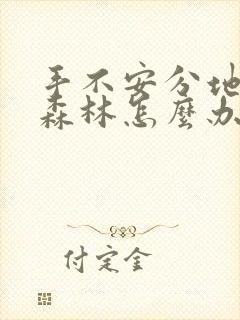 手不安分地
森林怎麼办
付定金